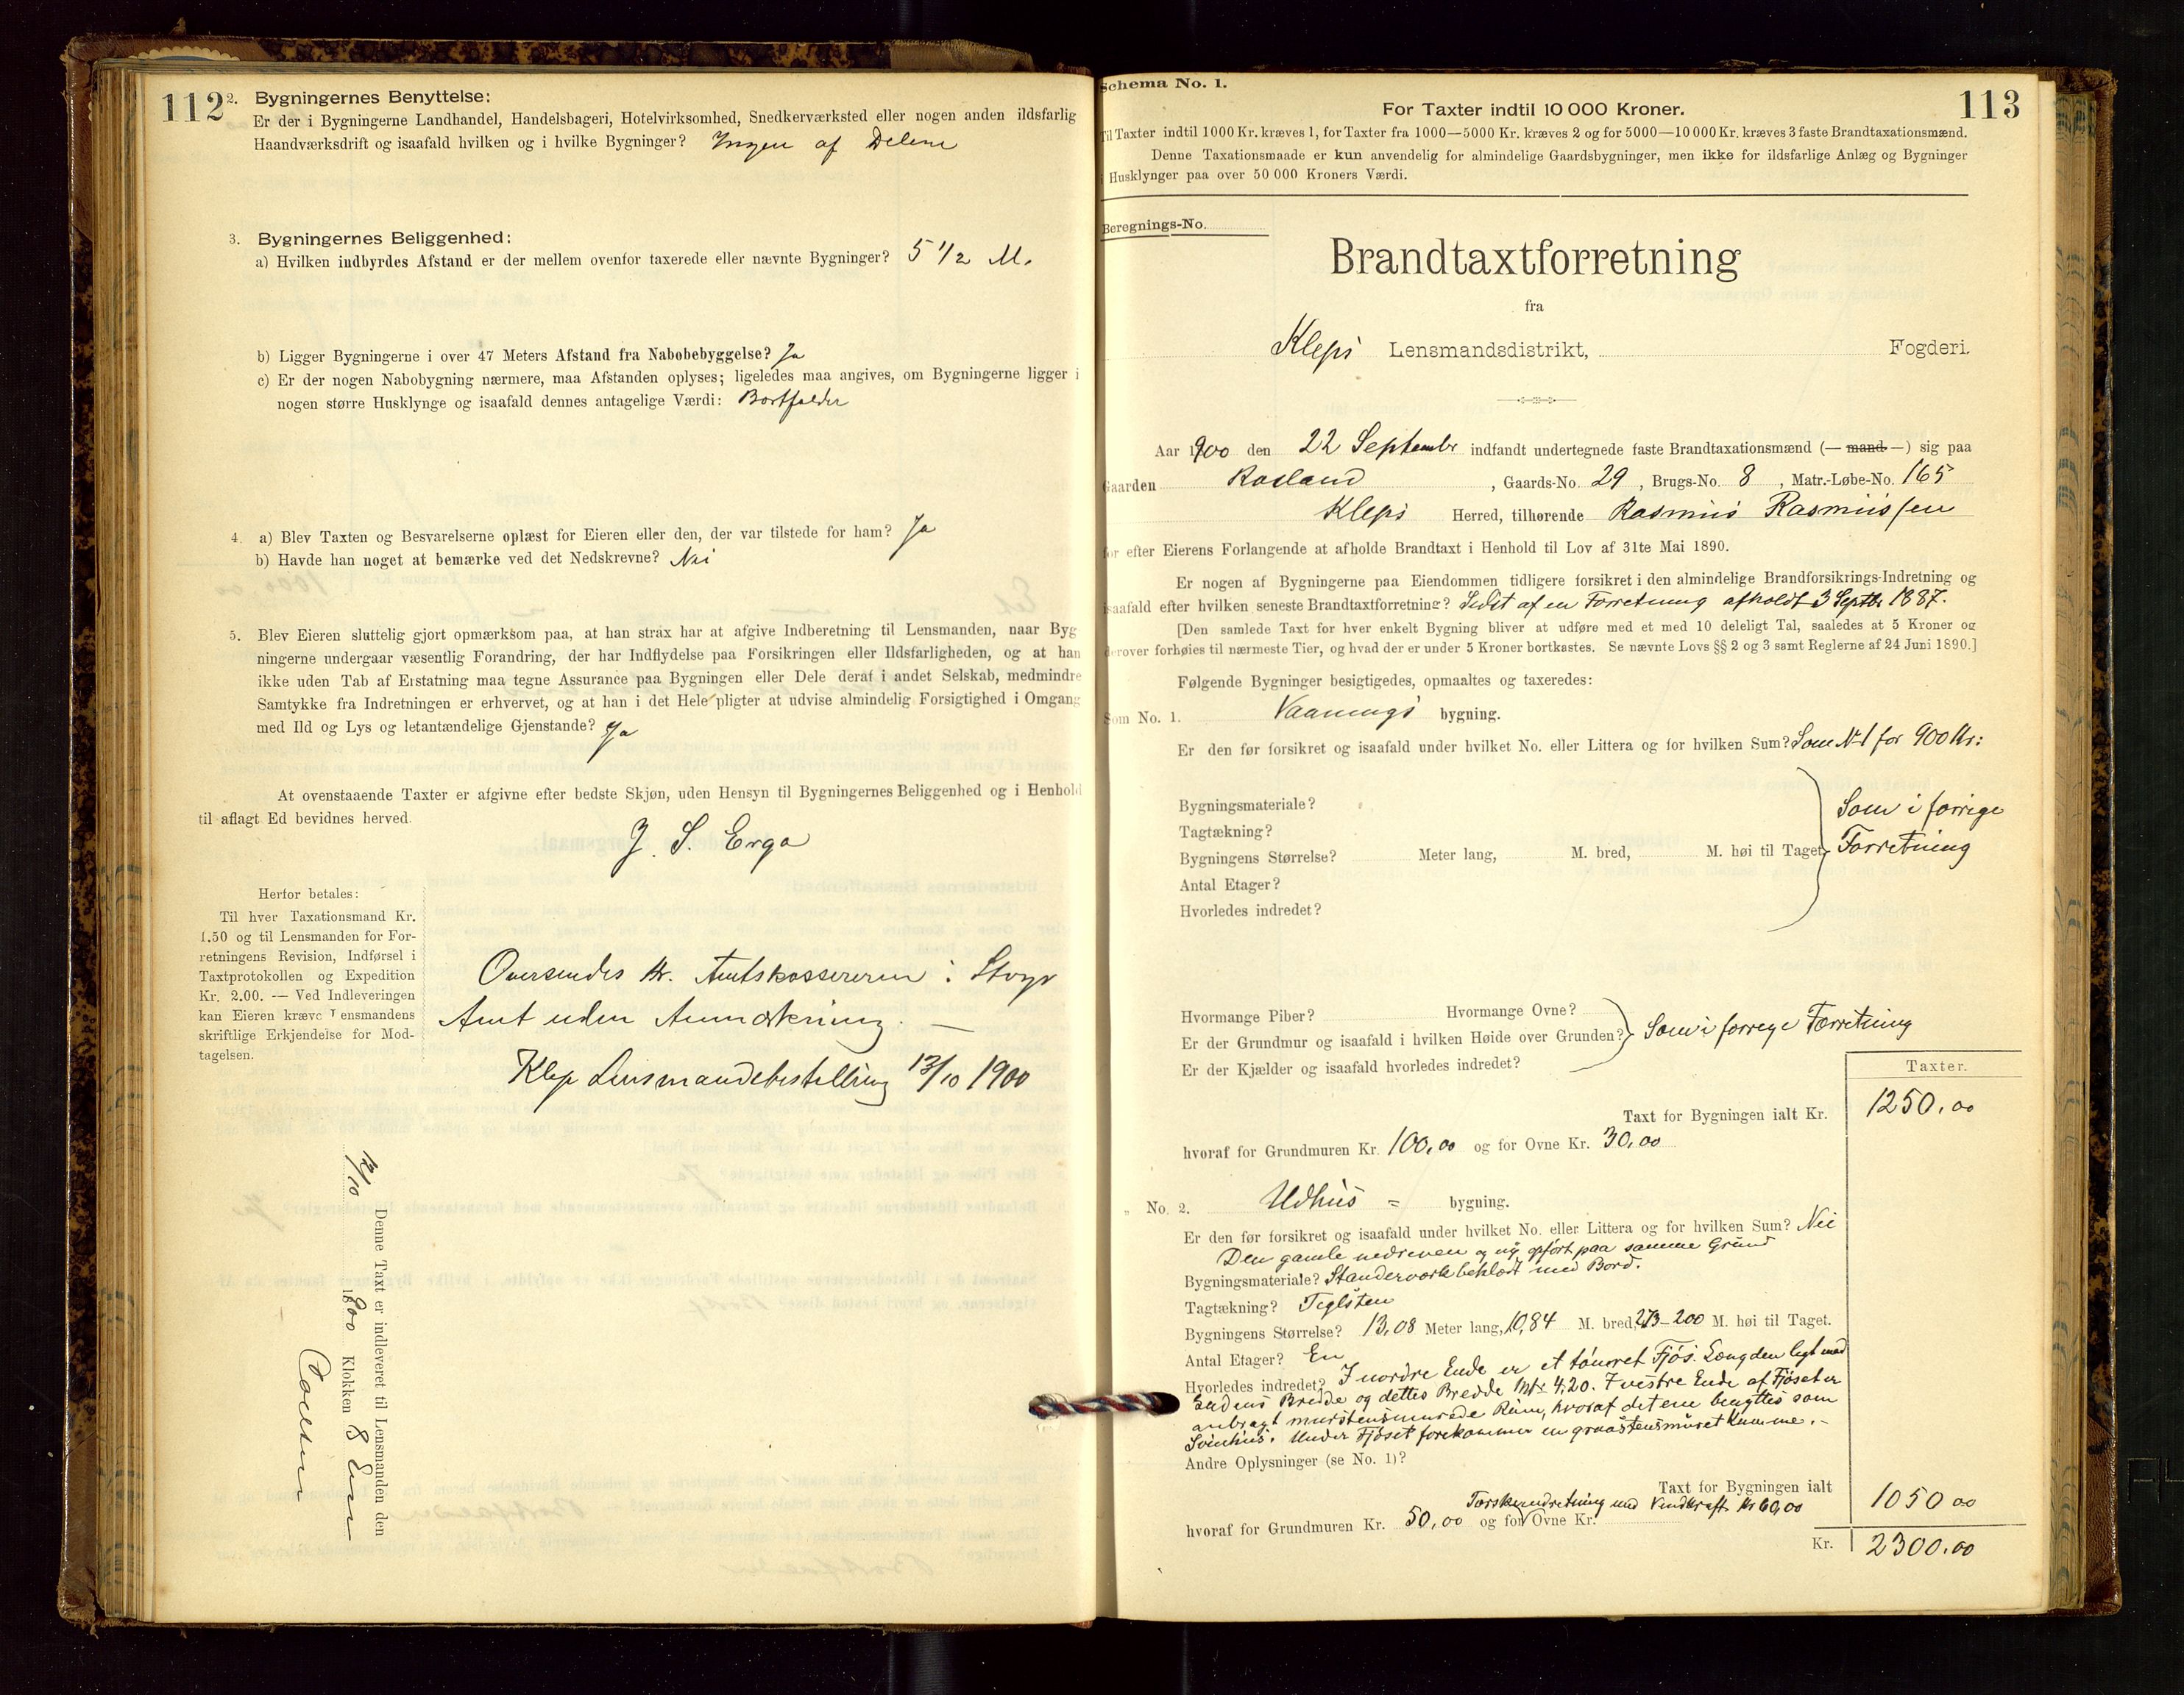 112
2. Bygningernes Benyttelse:
Er der i Bygningerne Landhandel, Handelsbageri, Hotelvirksomhed, Snedkerværksted eller nogen anden ildsfarlig
Haandværksdrift og isaafald hvilken og i hvilke Bygninger? Ingen af Delene
3. Bygningernes Beliggenhed:
a) Hvilken indbyrdes Afstand er der mellem ovenfor taxerede eller nævnte Bygninger? 5 1/2 M.
b) Ligger Bygningerne i over 47 Meters Afstand fra Nabobebyggelse? Ja
c) Er der nogen Nabobygning nærmere, maa Afstanden oplyses; ligeledes maa angives, om Bygningerne ligger i
nogen større Husklynge og isaafald dennes antagelige Værdi: Bortfalder
4. a) Blev Taxten og Besvarelserne oplæst for Eieren eller den, der var tilstede for ham? Ja
b) Havde han noget at bemærke ved det Nedskrevne? Nei
5. Blev Eieren sluttelig gjort opmærksom paa, at han strax har at afgive Indberetning til Lensmanden, naar Byg
ningerne undergaar væsentlig Forandring, der har Indflydelse paa Forsikringen eller Ildsfarligheden, og at han
ikke uden Tab af Erstatning maa tegne Assurance paa Bygningen eller Dele deraf i andet Selskab, medmindre
Samtykke fra Indretningen er erhvervet, og at han i det Hele pligter at udvise almindelig Forsigtighed i Omgang
med Ild og Lys og letantændelige Gjenstande? Ja
At ovenstaaende Taxter er afgivne efter bedste Skjøn, uden Hensyn til Bygningernes Beliggenhed og i Henhold
til aflagt Ed bevidnes herved.
J. S. Erga
Herfor betales:
Til hver Taxationsmand Kr.
1.50 og til Lensmanden for For-
retningens Revision, Indførsel i
Taxtprotokollen og Expedition
Kr. 2.00. — Ved Indleveringen
kan Eieren kræve Lensmandens
skriftlige Erkjendelse for Mod-
tagelsen.
Oversendes Hr. Amtskassereren i Stvgr
Amt uden Anmærkning. —
Klep Lensmandsbestilling 13/10 1900
Denne Taxt er indleveret til Lensmanden den
/10 1900 Klokken 8 Em
113
Schema No. 1.
For Taxter indtil 10 000 Kroner.
Til Taxter indtil 1000 Kr. kræves 1, for Taxter fra 1000—5000 Kr. kræves 2 og for 5000—10 000 Kr. kræves 3 faste Brandtaxationsmænd.
Denne Taxationsmaade er kun anvendelig for almindelige Gaardsbygninger, men ikke for ildsfarlige Anlæg og Bygninger
i Husklynger paa over 50 000 Kroners Værdi.
Beregnings-No.
Brandtaxtforretning
fra
Klepps Lensmandsdistrikt, Fogderi.
Aar 1900 den 22 Septembr indfandt undertegnede faste Brandtaxationsmænd (— mand —) sig paa
Gaarden Rosland, Gaards-No. 29, Brugs-No. 8, Matr.-Løbe-No. 165
Klepps Herred, tilhørende Rasmus Rasmussen
for efter Eierens Forlangende at afholde Brandtaxt i Henhold til Lov af 31te Mai 1890.
Er nogen af Bygningerne paa Eiendommen tidligere forsikret i den almindelige Brandforsikrings-Indretning og
isaafald efter hvilken seneste Brandtaxtforretning? Sidst af en Forretning afholdt 3 Septbr 1887.
[Den samlede Taxt for hver enkelt Bygning bliver at udføre med et med 10 deleligt Tal, saaledes at 5 Kroner og
derover forhøies til nærmeste Tier, og hvad der er under 5 Kroner bortkastes. Se nævnte Lovs §§ 2 og 3 samt Reglerne af 24 Juni 1890.]
Følgende Bygninger besigtigedes, opmaaltes og taxeredes:
Som No. 1. Vaanings bygning.
Er den før forsikret og isaafald under hvilket No. eller Littera og for hvilken Sum? Som N 1 for 900 Kr:
Bygningsmateriale?
Tagtækning?
Bygningens Størrelse? Meter lang, M. bred, M. høi til Taget.
Antal Etager?
Hvorledes indredet?
Som i forrige
Forretning
Hvormange Piber? Hvormange Ovne?
Er der Grundmur og isaafald i hvilken Høide over Grunden?
Er der Kjælder og isaafald hvorledes indredet?
Som i forrige Forretning
Taxter.
Taxt for Bygningen ialt Kr. 1250,00
hvoraf for Grundmuren Kr. 100,00 og for Ovne Kr. 30,00
" No. 2. Udhus = bygning.
Er den før forsikret og isaafald under hvilket No. eller Littera og for hvilken Sum? Nei
Den gamle nedreven og ny opført paa samme Grund
Bygningsmateriale? Standerværk beklædt med Bord.
Tagtækning? Teglsten
Bygningens Størrelse? 13,08 Meter lang, 10,84 M. bred, 273-200 M. høi til Taget.
Antal Etager? En
Hvorledes indredet? I nordre Ende er et tømret Fjøs. Længden ligt med
Endens Bredde og dettes Bredde Mtr 4,20. I vestre Ende af Fjøset er
anbragt murstensmurede Rum, hvoraf det ene benyttes som
Svinhus. Under Fjøset forekommer en graastensmuret Kumme. -
Andre Oplysninger (se No. 1)?
Taxt for Bygningen ialt 1050 00
Tærskeindretning med Vindkraft Kr 60,00
hvoraf for Grundmuren Kr. 50,00 og for Ovne Kr.
Kr. 2300,00